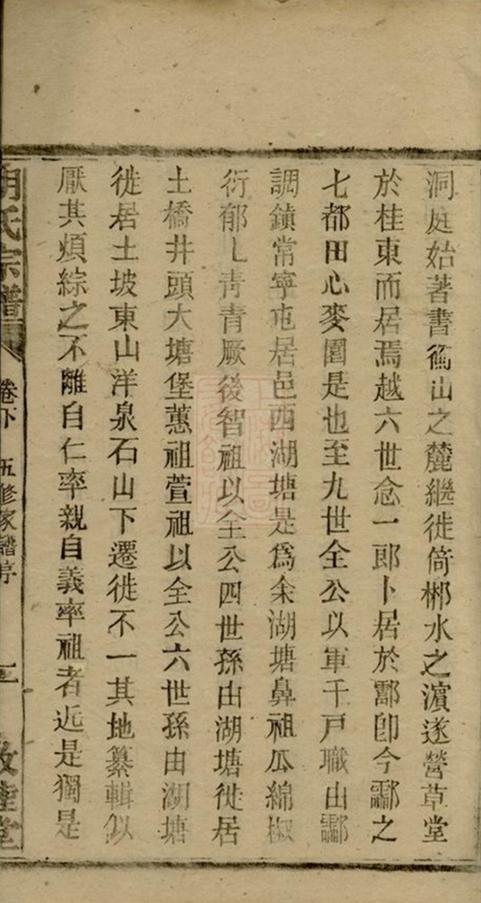 洞庭始著書衡山之麓繼徙倚郴水之濵遂營草堂
於桂東而居焉越六世念一郎卜居於酃卽今酃之
七都田心麥園是也至九世全公以軍千戸職由酃
調鎮常寧屯居邑西湖塘是爲余湖塘鼻祖瓜綿椒
衍郁乚靑靑厥後智祖以全公四世孫由湖塘徙居
土橋井頭大塘堡蕙祖萱祖以全公六世孫由湖塘
徙居土坡東山洋泉石山下遷徙不一其地纂輯以
厭其煩綜之不離自仁率親自義率祖者近是獨是
氏宗譜 卷下 五修家譜序 二 敦睦堂